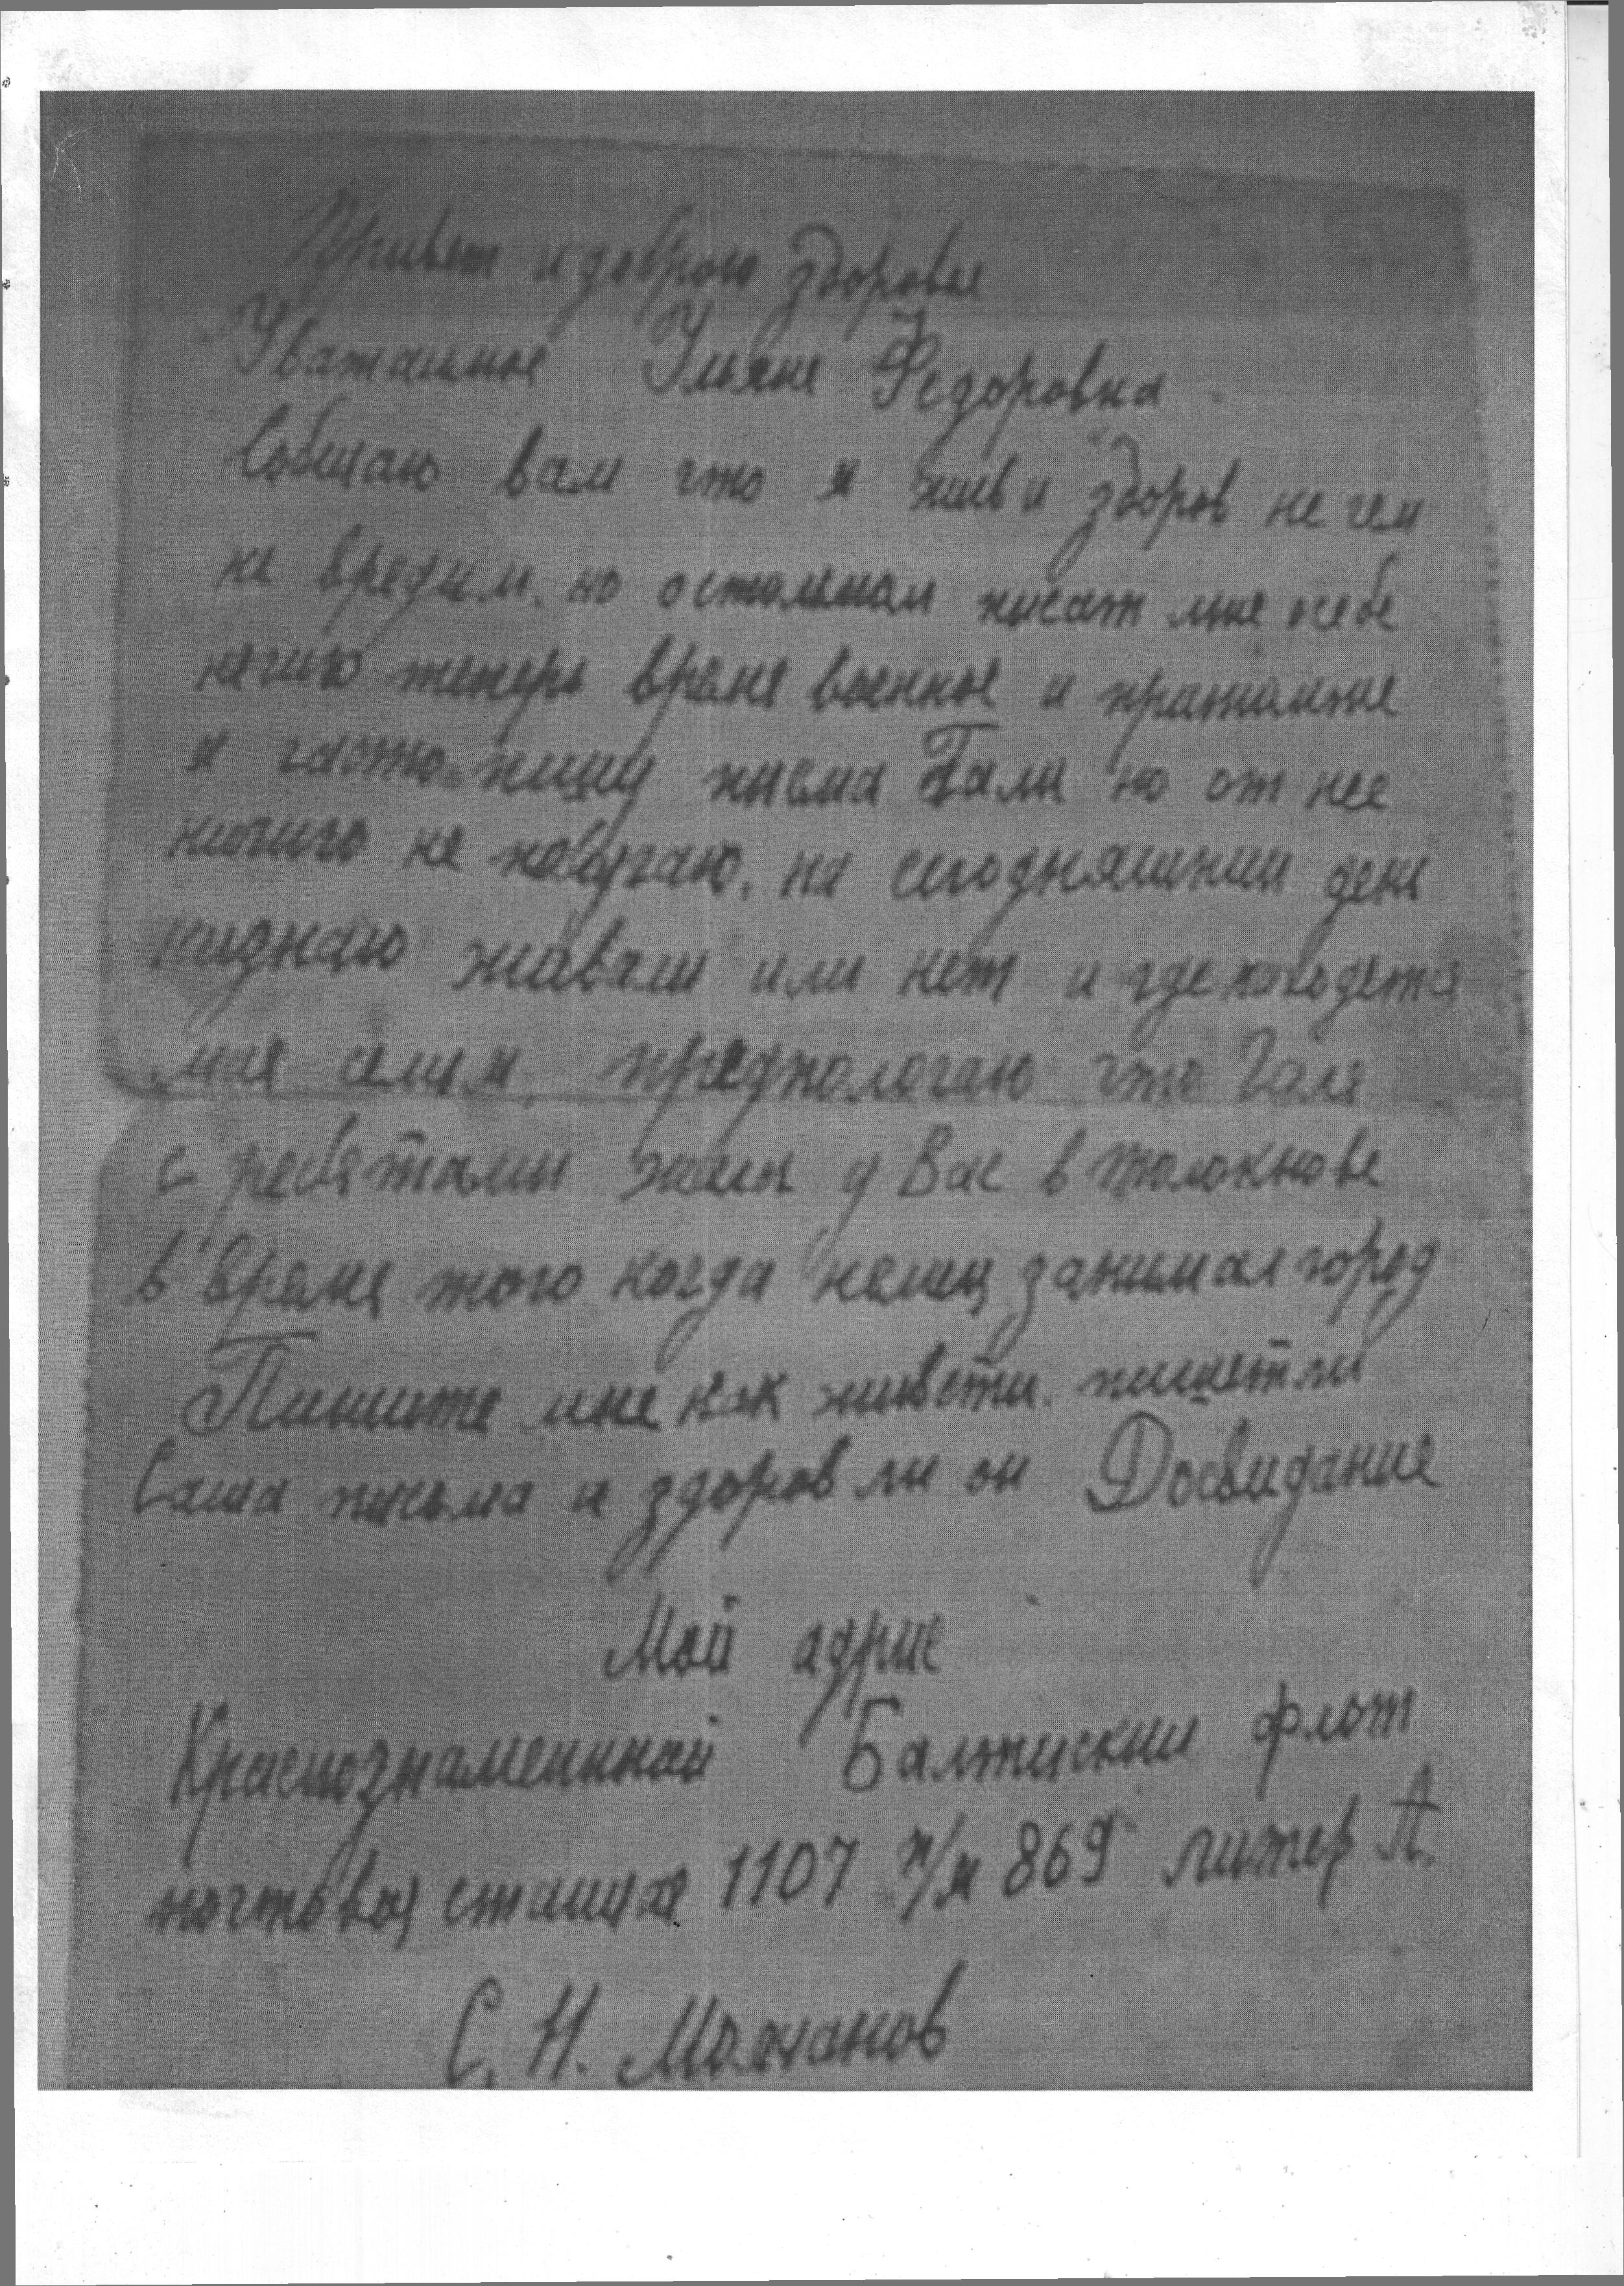 Привет и доброго здоровья
Уважаемое Ульяне Федоровна
Собщаю вам что я жив и здоров не чем
не вредим. но остольном писат мне осебе
нечиго теперь время военное и
я часто пишу писма Гали но от нее
ничиго не получаю. на сигодняшнии день
низнаю живали или нет и где находется
мая семя. предпологаю что Галя
с ребятами жила у Вас в Толокнове
в время того когда немец занимал город
Пишите мне как живети. пишетли
Саша письма и здоров ли он Досвидание
Мой адрис
Краснознаменный Балтискии флот
почтовоя станцая 1107 п/я 869 литер А.
С. Н. Молчанов